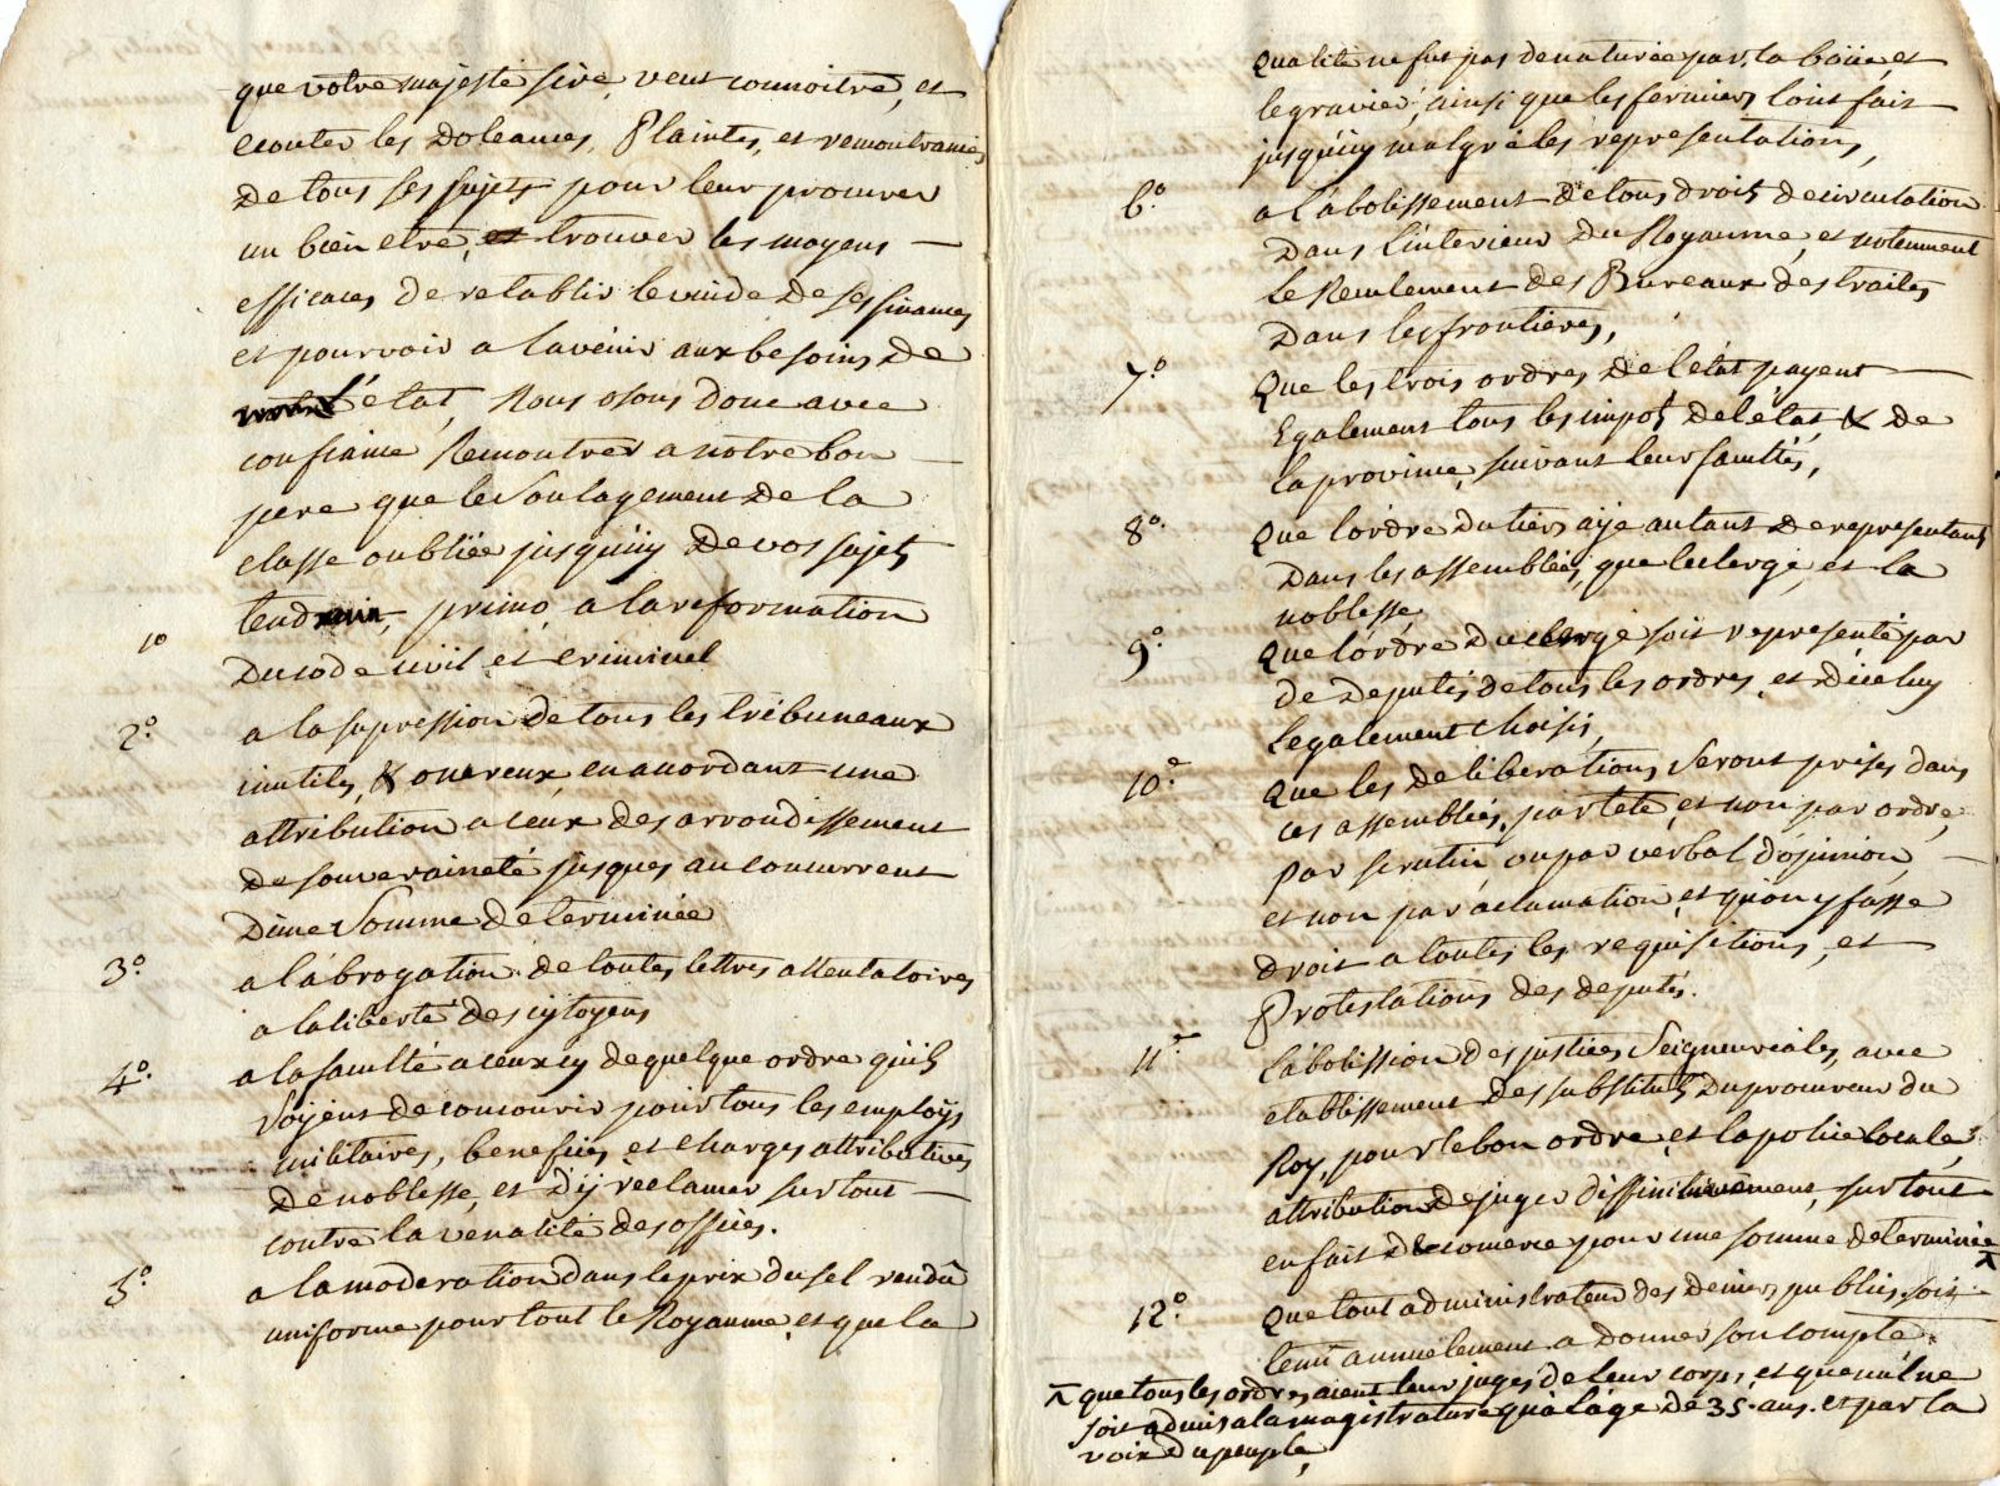 que votre majesté sire, veut connoitre, et
ecouter les Doleances, Plaintes, et remontrances
De tous ses sujets pour leur procurer
un bien etre, et trouver les moyens
efficaces, de retablir le vuide de ses finances
et pourvoir a l'avenir aux besoins de
l'état, Nous osons donc avec
confiance Remontrer a notre bon
pere que le Soulagement de la
classe oubliée jusqu'icy De vos sujets
tend, primo, a la reformation
1º Du code civil et criminel
2º. a la supression de tous les tribuneaux
inutiles, & onereux, en accordant une
attribution a ceux des arrondissement
de souveraineté jusques au concurrent
D'une Somme determinée
3º. a l'abrogation de toutes lettres attentatoires
a la liberté des cytoyens
4º. a la faculté a ceux cy de quelque ordre qu'ils
Soyent de concourir pour tous les employs
militaires, benefices, et charges attributives
de noblesse, et d'y reclamer sur tout
contre la venalité des offices.
5º. a la moderation dans le prix du sel rendû
uniforme pour tout le Royaume, et que la
Qualité ne fut pas denaturée par la boüe, et
le gravier, ainsi que les fermiers l'ont fait
jusqu'icy malgré les representations,
6º. a l'abolissement de tous droits de circulation
Dans l'interieur Du Royaume, et notemment
le Reculement des Bureaux des traites
Dans les frontieres,
7º. Que les trois ordres de l'état payent
Egalement tous les impots de l'état & de
la province, suivant leurs facultés,
8º. Que l'ordre du tiers aije autant de representants
Dans les assemblées, que le clergé, et la
noblesse,
9º. Que l'ordre du clergé soit representé par
de Deputés de tous les ordres, et d'iceluy
legalement choisis,
10º. Que les deliberations Seront prises dans
ces assemblées, par tete, et non par ordre,
par scrutin, ou par verbal d'opinion,
et non par aclamation, et qu'on y fasse
droit a toutes les requisitions, et
Protestations des deputés.
11º. L'abolission des justices Seigneuriales, avec
etablissement des substituts du procureur du
Roy, pour le bon ordre, et la police locale,
attribution de juger diffinitivement, sur tout
en fait de comerce, pour une somme determinée
12º. Que tout administrateur des deniers publics, soit
tenû annuelement a donner son compte.
que tous les ordres, aient leur juges de leur corps, et que nul ne
soit admis a la magistrature qu'à l'age de 35. ans. et par la
voix du peuple,